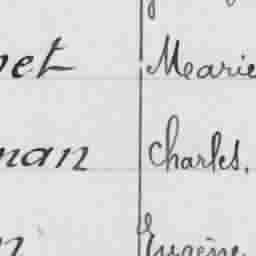 net Mearie
nan Charles,
n Eugène